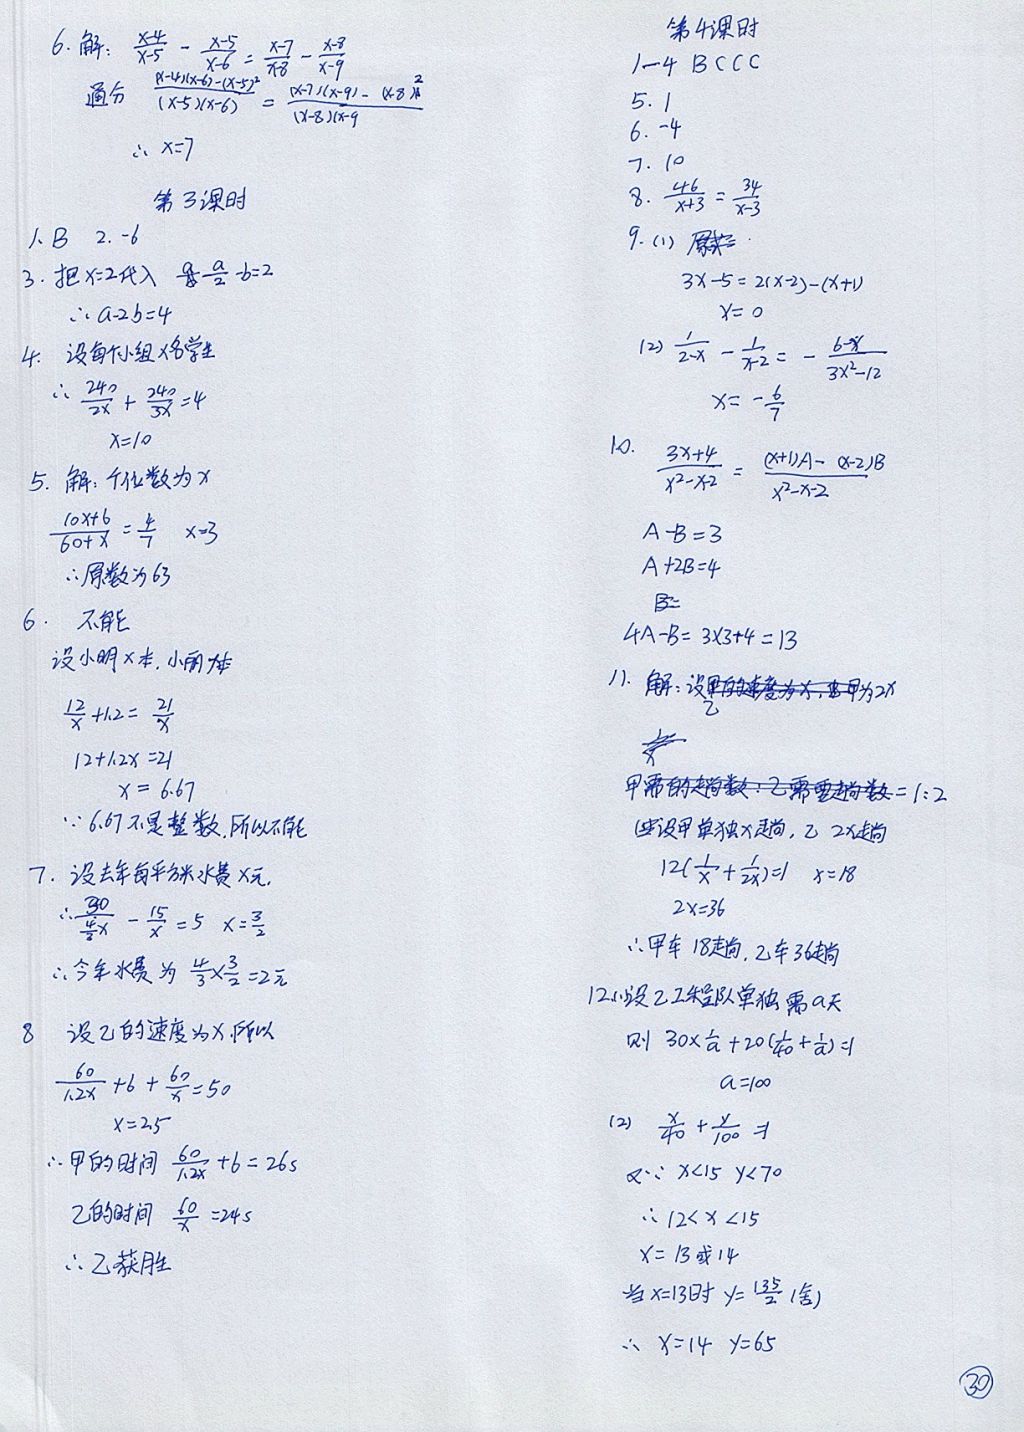 6. 解: (x-4)/(x-5) - (x-5)/(x-6) = (x-7)/(x-8) - (x-8)/(x-9)
通分 ((x-4)(x-6)-(x-5)²)/((x-5)(x-6)) = ((x-7)(x-9)-(x-8)²)/((x-8)(x-9
∴ x=7
第3课时
1. B 2. -6
3. 把x=2代入 a/2 - b=2
∴ a-2b=4
4. 设每个小组x名学生
∴ 240/2x + 240/3x = 4
x=10
5. 解: 个位数为x
(10x+6)/(60+x) = 4/7 x=3
∴原数为63
6. 不能
设小明x本,小丽x本
12/x + 1.2 = 21/x
12+1.2x=21
x = 6.67
∵ 6.67不是整数,所以不能
7. 设去年每平方米水费x元,
∴ 30/(4/3 x) - 15/x = 5 x=3/2
∴今年水费为 4/3×3/2=2元
8 设乙的速度为x,所以
60/1.2x + 6 + 60/x = 50
x=2.5
∴甲的时间 60/1.2x + 6 = 26s
乙的时间 60/x = 24s
∴乙获胜
第4课时
1-4 B C C C
5. 1
6. -4
7. 10
8. 46/(x+3) = 34/(x-3)
9. (1)
3x-5=2(x-2)-(x+1)
x=0
(2) 1/(2-x) - 1/(x-2) = - (6-x)/(3x²-12)
x= -6/7
10. (3x+4)/(x²-x-2) = ((x+1)A-(x-2)B)/(x²-x-2)
A-B=3
A+2B=4
B=
4A-B= 3×3+4=13
11. 解: 设甲的速度为x, 甲为2x
乙
甲需的趟数:乙需要趟数=1:2
设甲单独x趟,乙 2x趟
12(1/x + 1/2x)=1 x=18
2x=36
∴甲车18趟,乙车36趟
12.(1)设乙工程队单独需a天
则 30×1/a+20(1/40+1/a)=1
a=100
(2) x/40 + y/100 =1
又∵ x<15 y<70
∴ 12<x<15
x=13或14
当x=13时 y=135/2 (舍)
∴ x=14 y=65
30